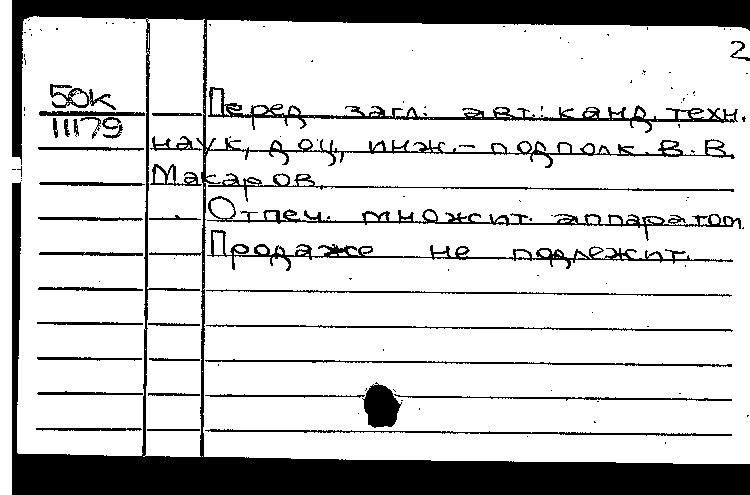 2
50К
11179
Перед загл. авт.: канд. техн.
наук, доц., инж.-подполк. В. В.
Макаров.
Отпеч. множит. аппаратом
Продаже не подлежит.